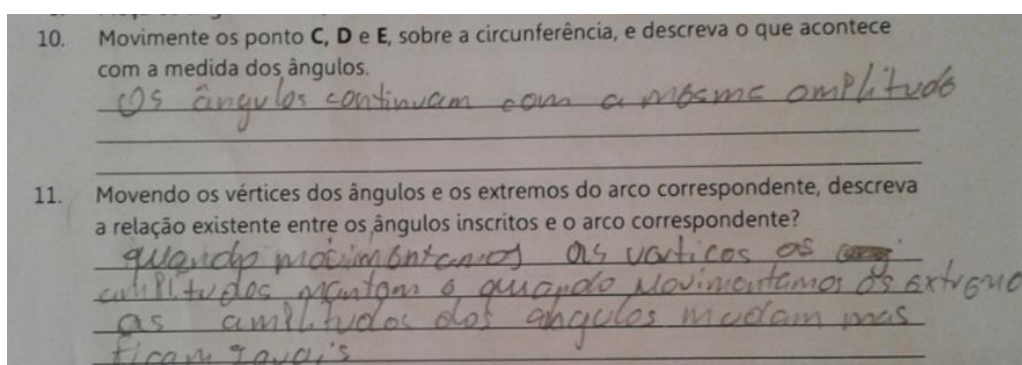 10. Movimente os ponto C, D e E, sobre a circunferência, e descreva o que acontece
com a medida dos ângulos.
Os ângulos continuam com a mesma amplitude
11. Movendo os vértices dos ângulos e os extremos do arco correspondente, descreva
a relação existente entre os ângulos inscritos e o arco correspondente?
quando movimentamos as vertices as
amplitudes mantem e quando movimentamos os extremo
as amplitudes dos angulos mudam mas
ficam iguais